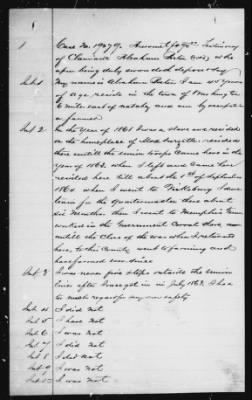 1
Case No. 19679. Account for $ Testimony
of Claimant Abraham (Col) who
upon being duly sworn doth depose & say
Int. 1 My name is Abraham I am 40 years
of age reside in the town of Washington
6 miles east of Natchez and am by occupation
a farmer.
Int 2 In the Year of 1861 I was a slave and resided
on the homeplace of Mrs. & resided
there until the union troops came here in the
year of 1863, when I left and came here
resided here till about the 1st of September
1864 when I went to Vicksburg I drove
team for the Quartermaster there about
six months then I went to Memphis Tenn
worked in the Government Corral there
until the Close of the war when I returned
here, to this County went to farming and
have farmed ever since
Int. 3 I was never five steps outside the union
lines after I once got in in July 1863. I had
to much regard for my own safety
Int. 4 I did not
Int. 5 I have not
Int. 6 I was not
Int. 7 I did not
Int. 8 I did not
Int. 9 I was not
Int. 10 I was not